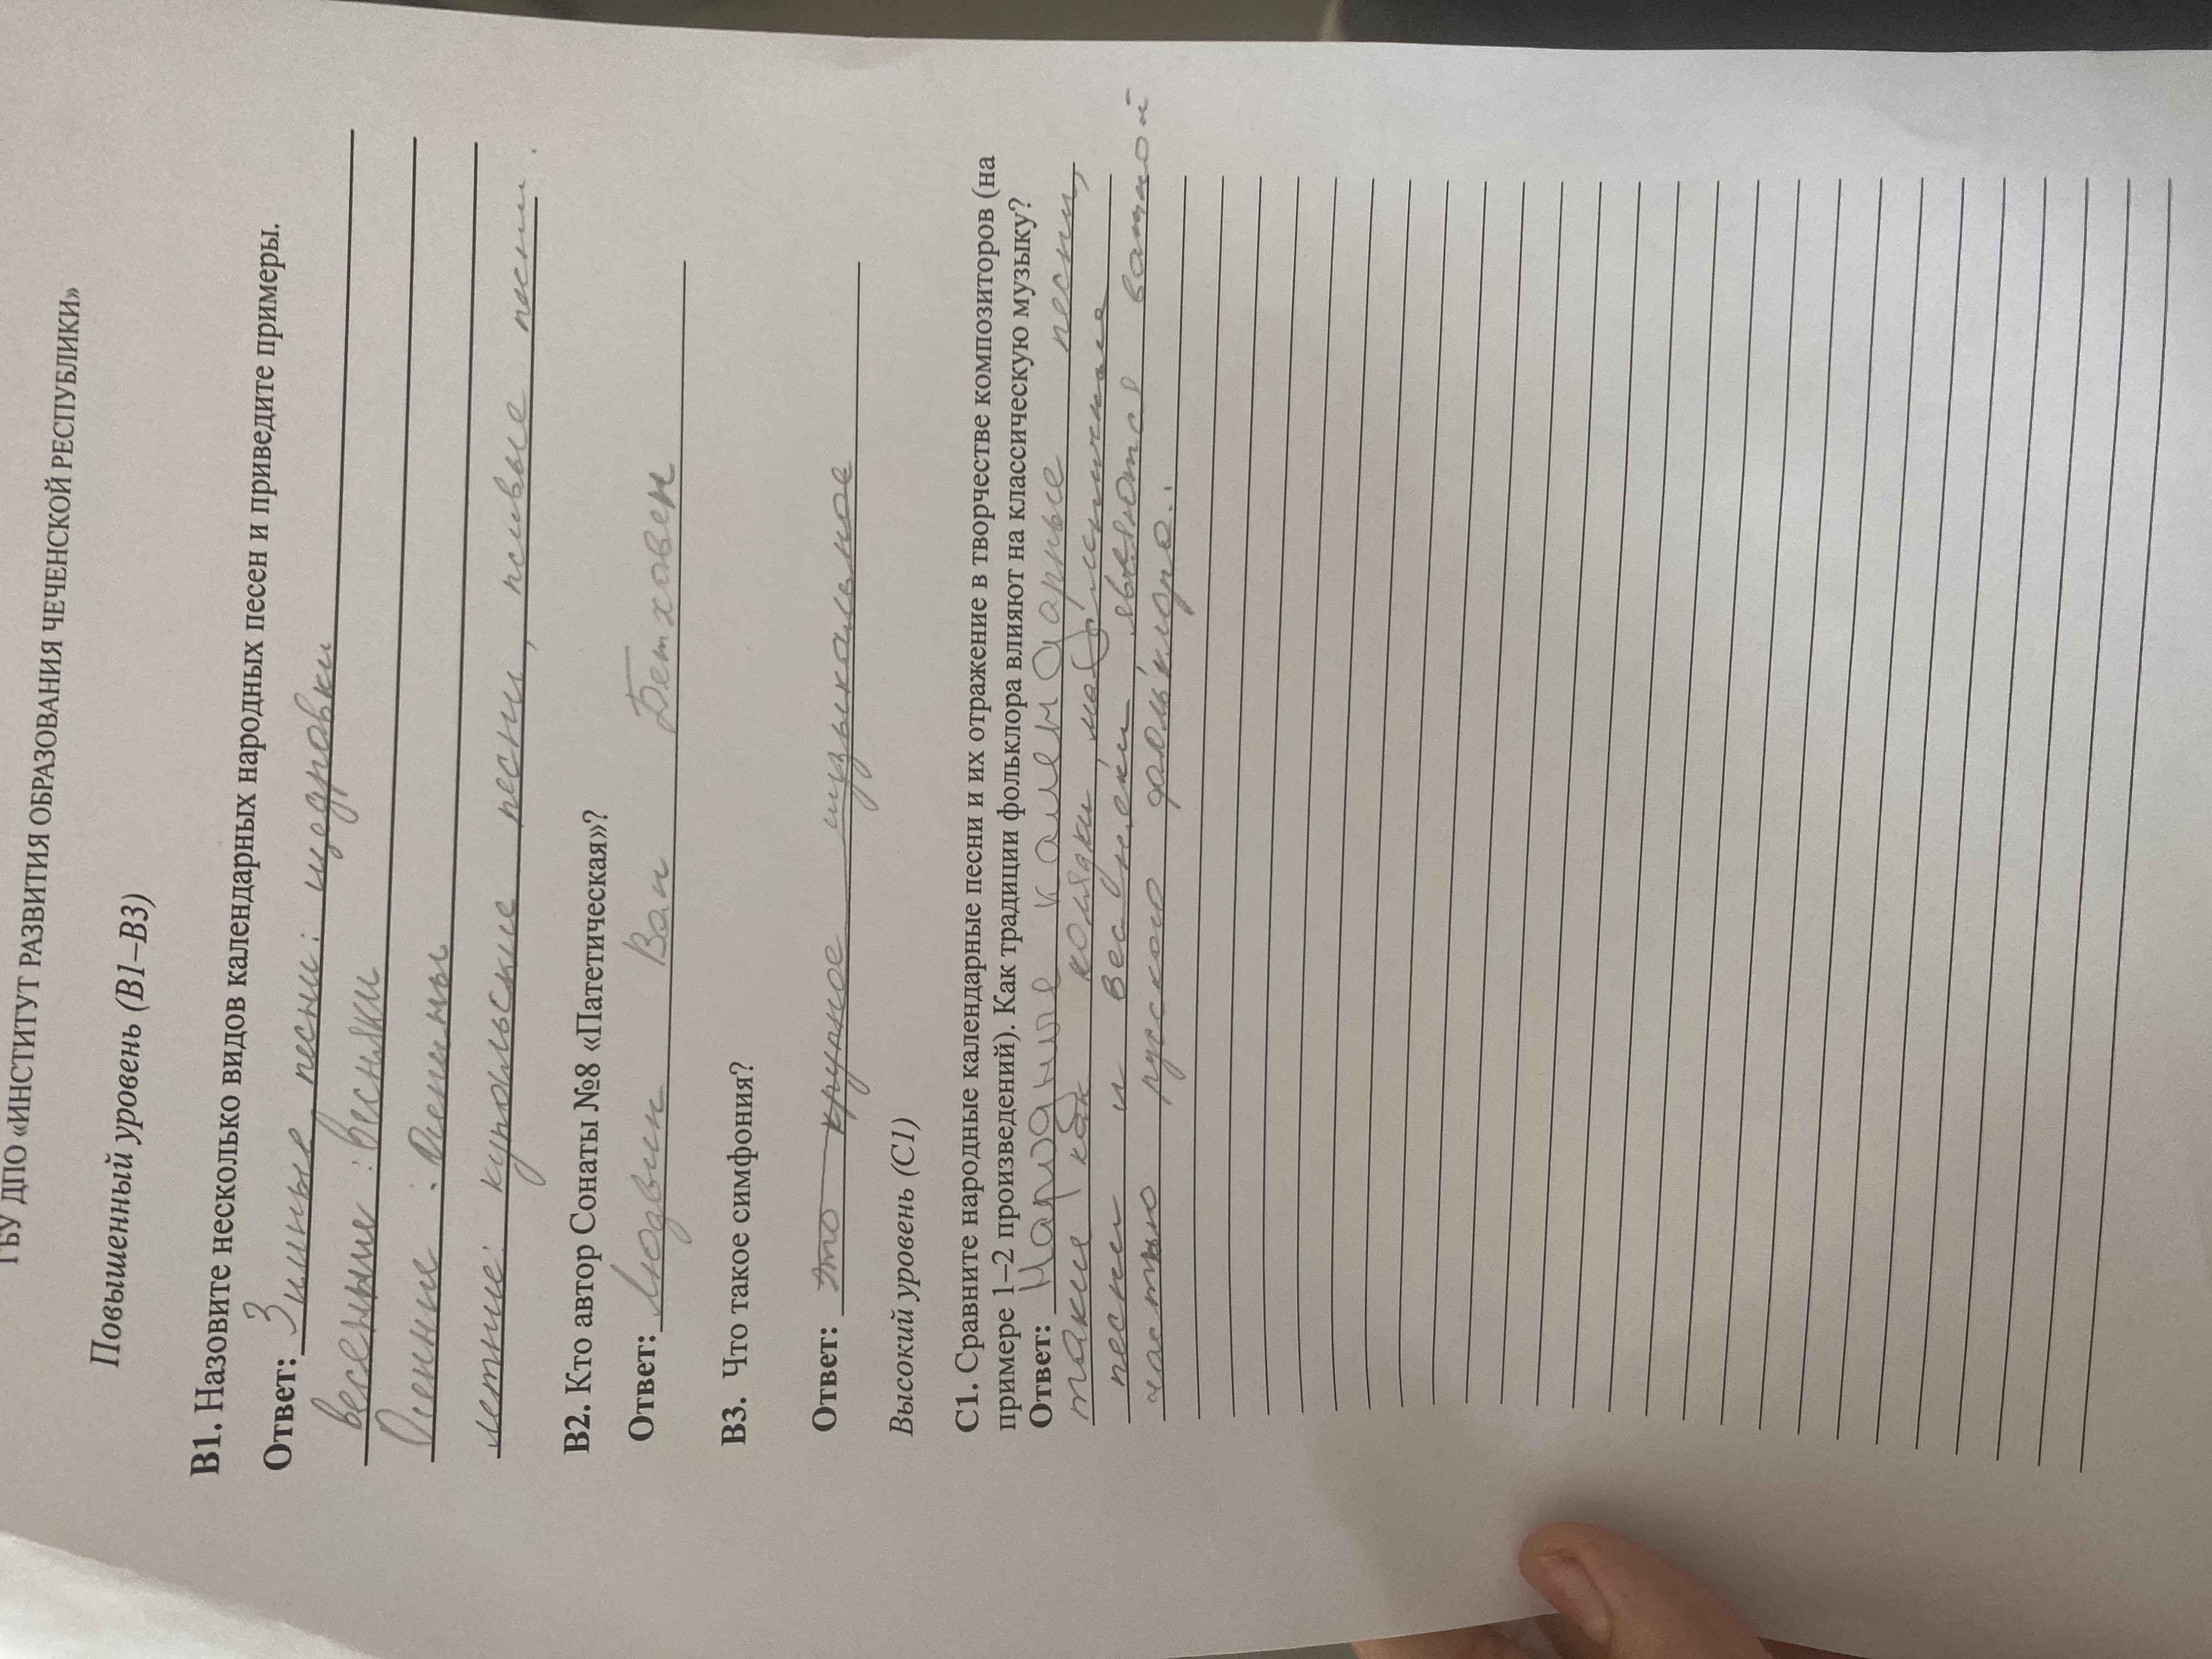 ГБУ ДПО «ИНСТИТУТ РАЗВИТИЯ ОБРАЗОВАНИЯ ЧЕЧЕНСКОЙ РЕСПУБЛИКИ»
Повышенный уровень (В1–В3)
В1. Назовите несколько видов календарных народных песен и приведите примеры.
Ответ: Зимние песни: щедровки
весенние: веснянки
Осенние:
летние: купольские песни,
песни.
В2. Кто автор Сонаты №8 «Патетическая»?
Ответ: Людвин Ван Бетховен
В3. Что такое симфония?
Ответ: это крупное музыкальное
Высокий уровень (С1)
С1. Сравните народные календарные песни и их отражение в творчестве композиторов (на
примере 1–2 произведений). Как традиции фольклора влияют на классическую музыку?
Ответ: Народные календарные песни,
такие как колядки,
песни и веснянки являются важной
частью русского фольклора.